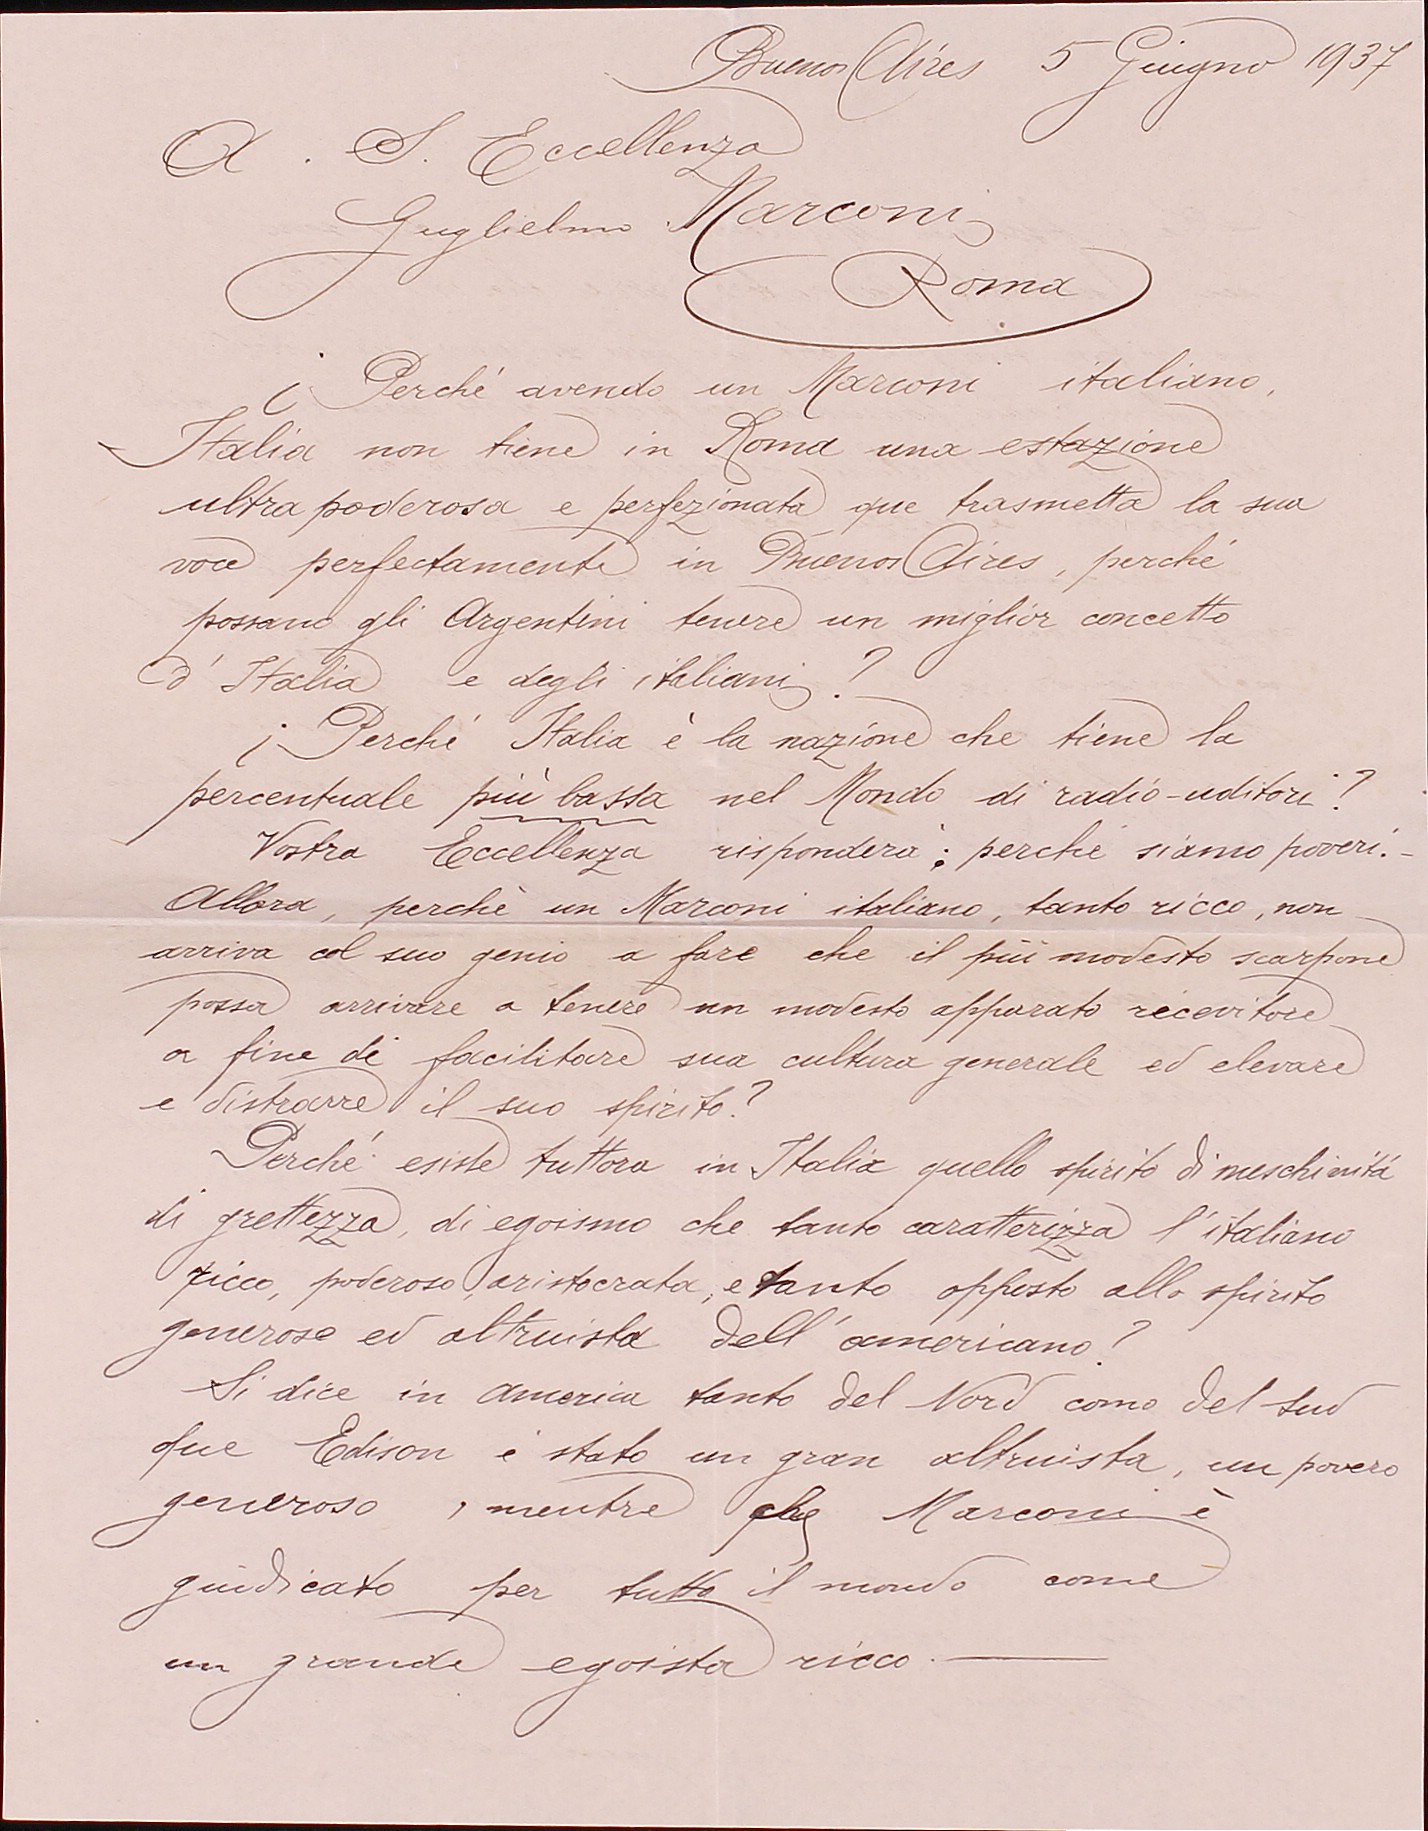 Buenos Aires 5 Giugno 1937
A. S. Eccellenza
Guglielmo Marconi
Roma
¿ Perché avendo un Marconi italiano,
Italia non tiene in Roma una estazione
ultra poderosa e perfezionata que trasmetta la sua
voce perfectamente in Buenos Aires, perché
possano gli Argentini tenere un miglior concetto
d' Italia e degli italiani ?
¿ Perché Italia è la nazione che tiene la
percentuale più bassa nel Mondo di radio-uditori ?
Vostra Eccellenza risponderà : perché siamo poveri.-
Allora, perchè un Marconi italiano, tanto ricco, non
arriva col suo genio a fare che il più modesto scarpone
possa arrivare a tenere un modesto apparato recevitore
a fine di facilitare sua cultura generale ed elevare
e distrarre il suo spirito ?
Perché esiste tuttora in Italia quello spirito di meschinitá
di grettezza, di egoismo che tanto caratterizza l'italiano
ricco, poderoso, aristocrata, e tanto opposto allo spirito
generoso ed altruista dell' americano ?
Si dice in America tanto del Nord como del Sud
que Edison è stato un gran altruista, un povero
generoso, mentre che Marconi è
giudicato per tutto il mondo come
un grande egoista ricco.